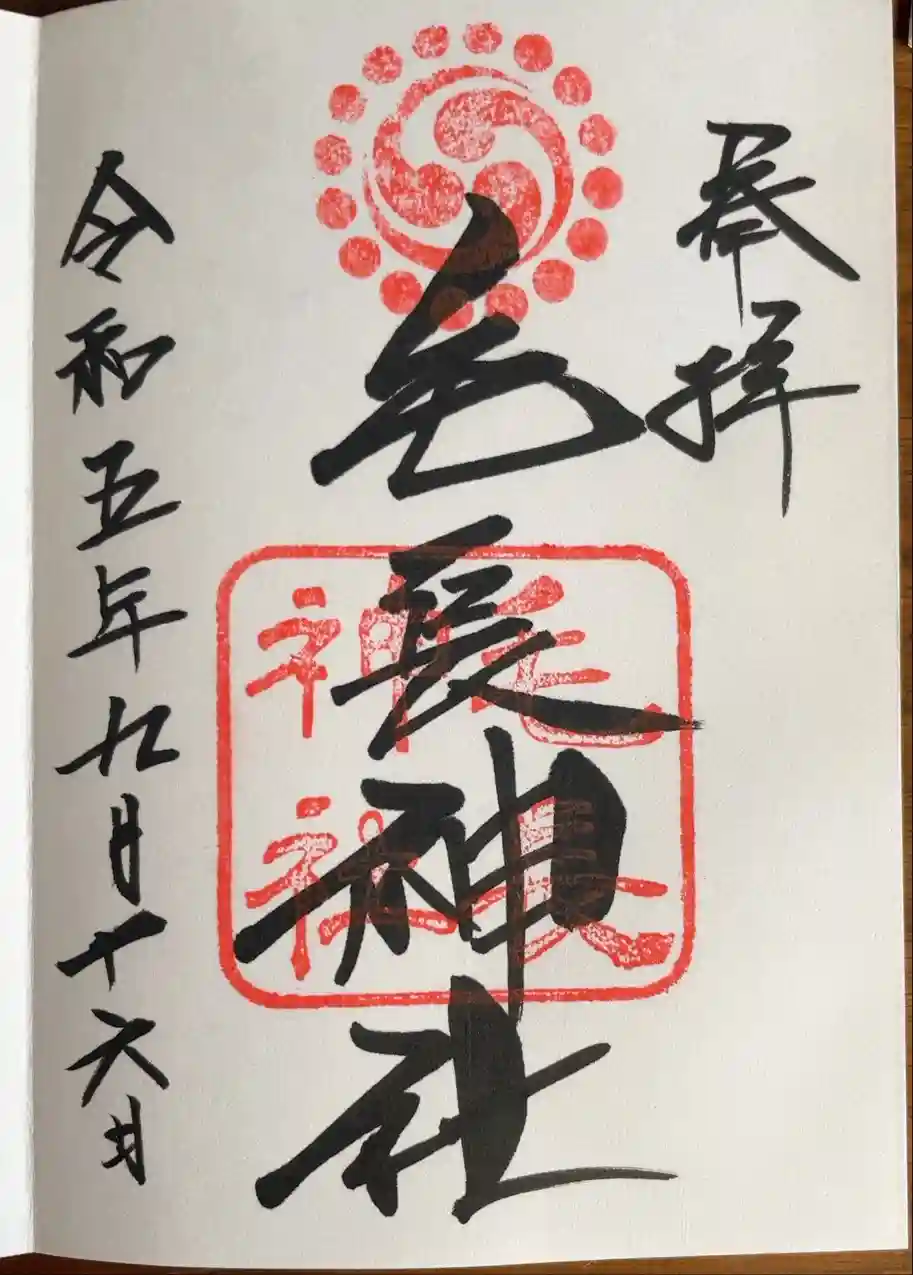 奉拝
毛長神社
毛長
神社
令和五年九月十六日